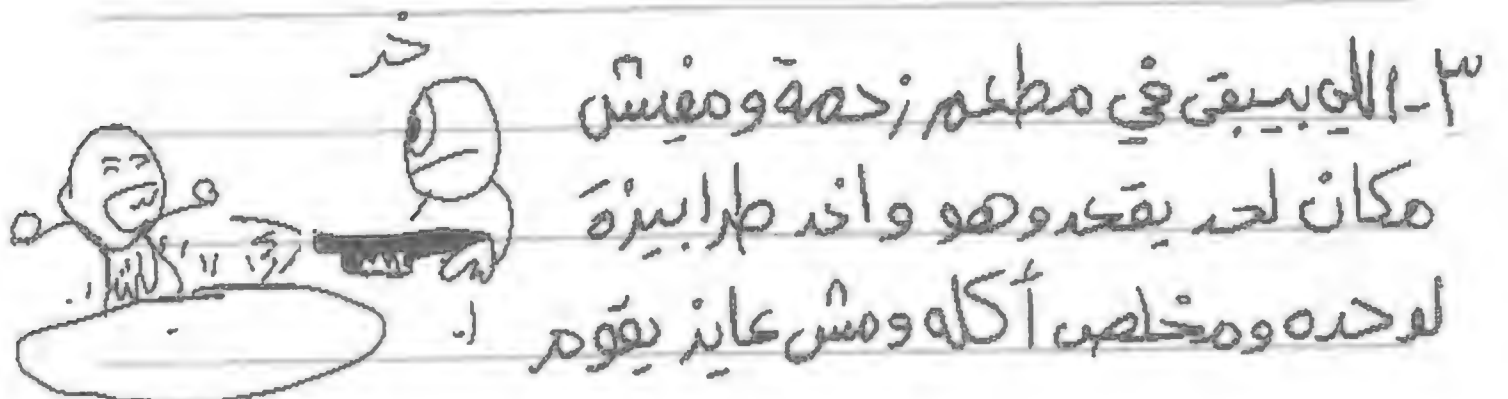 خد
٣-اللي بيبقى في مطعم زحمة ومفيش
مكان لحد يقعد وهو واخد طرابيزة
لوحده ومخلص أكله ومش عايز يقوم